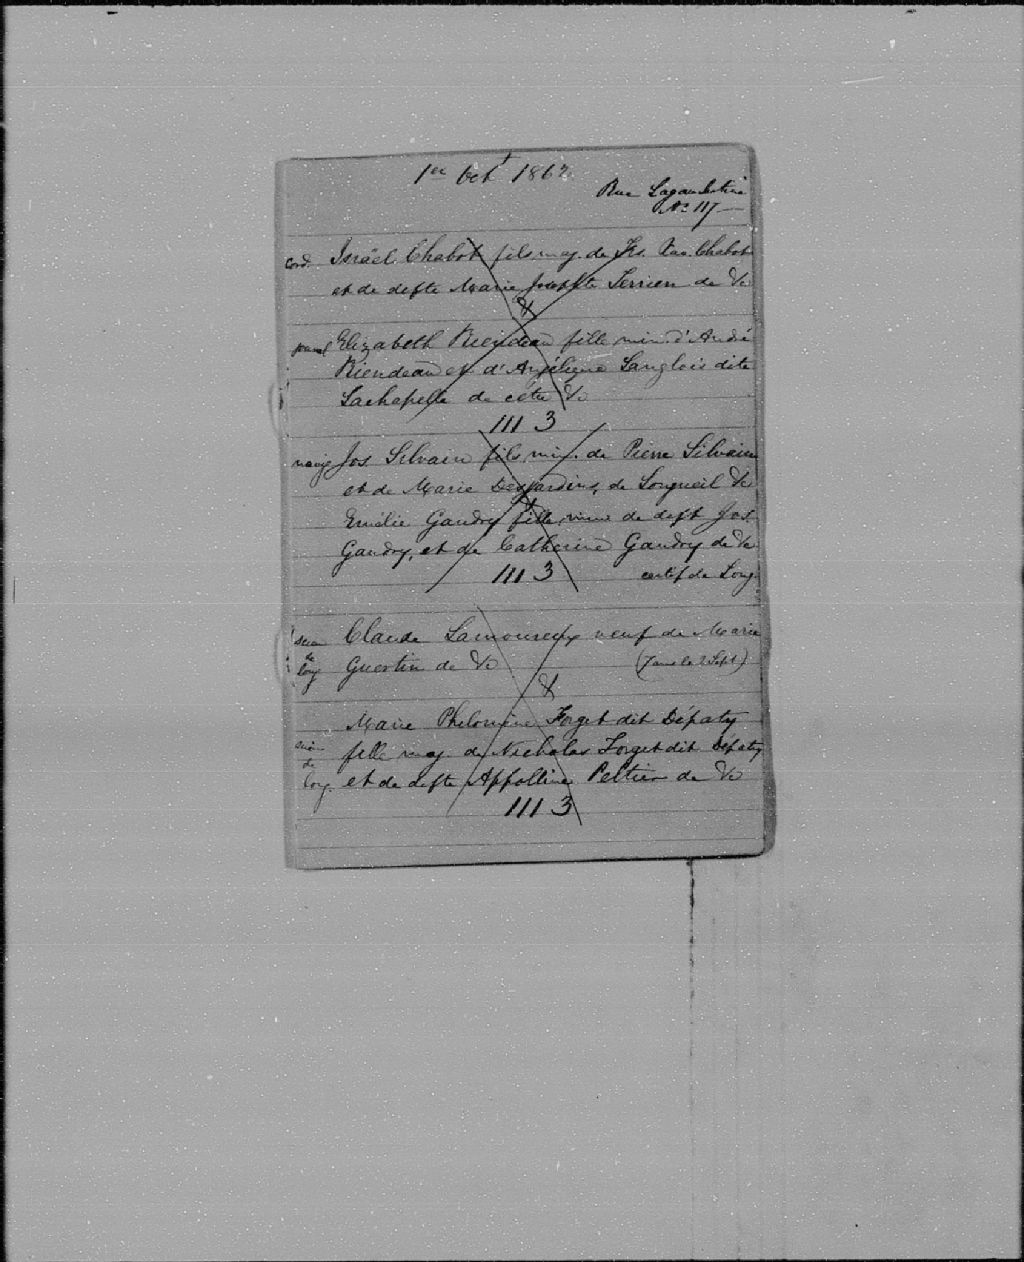 1er Oct 1862
Rue Lagauchetiere
No 117
cord. Israël Chabot fils maj. de Frs. Xav. Chabot
et de defte Marie Josephte Terrien de Vc
&
journl Elizabeth Riendeau fille min. d'André
Riendeau et d'Angélique Langlois dite
Lachapelle de cette Vc
111 3
navig Jos. Silvain fils min. de Pierre Silvain
et de Marie Desjardins, de Longueil Vc
&
Emélie Gaudry fille min. de deft Jos.
Gaudry, et de Catherine Gaudry de Vc
111 3 certif de Long.
Claude Lamoureux veuf de Marie
de Guertin de Vc (7 Sept)
long
&
Marie Philomene Forget dit Dépaty
de fille maj. de Nicholas Forget dit Dépaty
long. et de defte Appolline Peltier de Vc
111 3